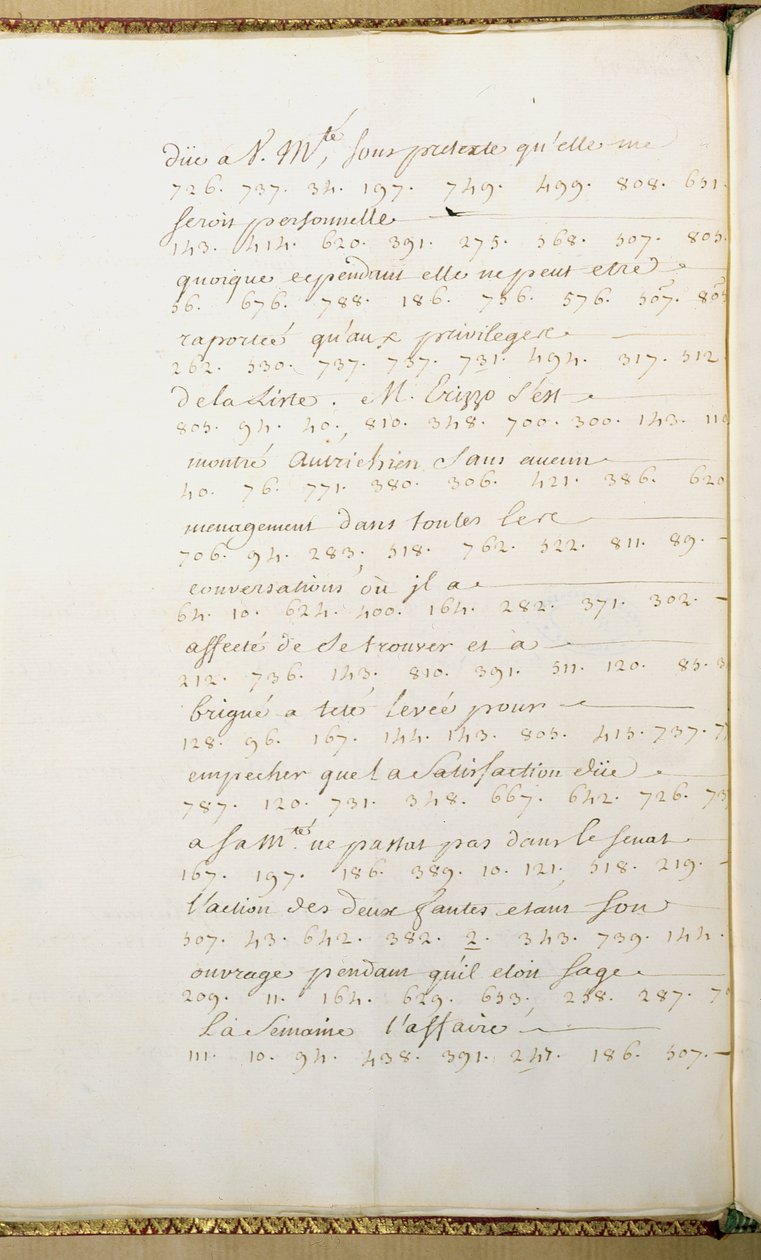 düe a V. M.té, sous pretexte qu'elle me
726. 737. 34. 197. 749. 499. 808. 651.
seroit personnelle
143. 414. 620. 391. 275. 568. 507. 805.
quoique cependant elle ne peut etre
56. 676. 788. 186. 756. 576. 507. 805
raportée qu'aux privileges
262. 530. 737. 757. 731. 494. 317. 512
de la Liste. M. Erizzo s'est
805. 94. 40. 810. 348. 700. 300. 143. 110
montré Autrichien sans aucun
40. 76. 771. 380. 306. 421. 386. 620
menagement dans toutes les
706. 94. 283. 518. 762. 522. 811. 89. -
conversations où jl a
64. 10. 624. 400. 164. 282. 371. 302. -
affecté de se trouver et a
212. 736. 143. 810. 391. 511. 120. 85. 3
brigué a teté levée pour
128. 96. 167. 144. 143. 805. 415. 737. 7
empecher que la Satisfaction düe
787. 120. 731. 348. 667. 642. 726. 73
a sa M.té ne passat pas dans le senat
167. 197. 186. 389. 10. 121. 518. 219. -
l'action des deux fautes etant son
507. 43. 642. 382. 2. 343. 739. 144.
ouvrage pendant qu'il etoit sage
209. 11. 164. 629. 653. 258. 287. 7
La Semaine l'affaire
111. 10. 94. 438. 391. 247. 186. 507. -